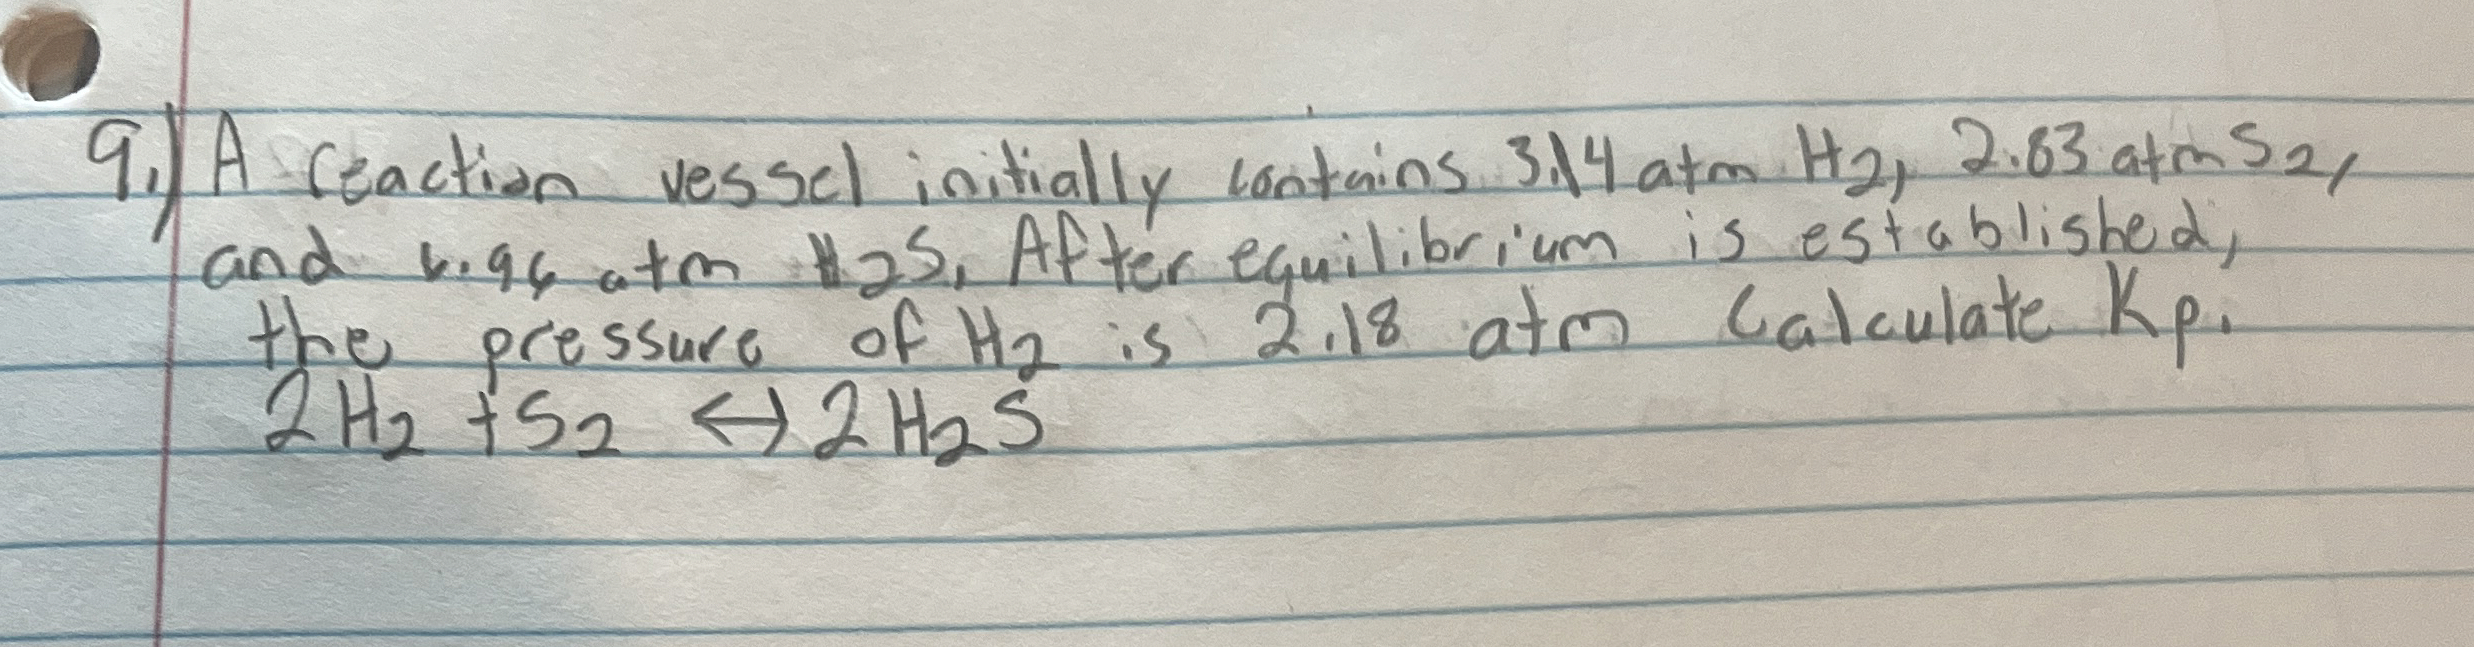 9.) A reaction vessel initially contains 3.14 atm H2, 2.83 atm S2,
and atm H2S. After equilibrium is established,
the pressure of H2 is 2.18 atm Calculate Kp.
2H2 + S2 ↔ 2H2S